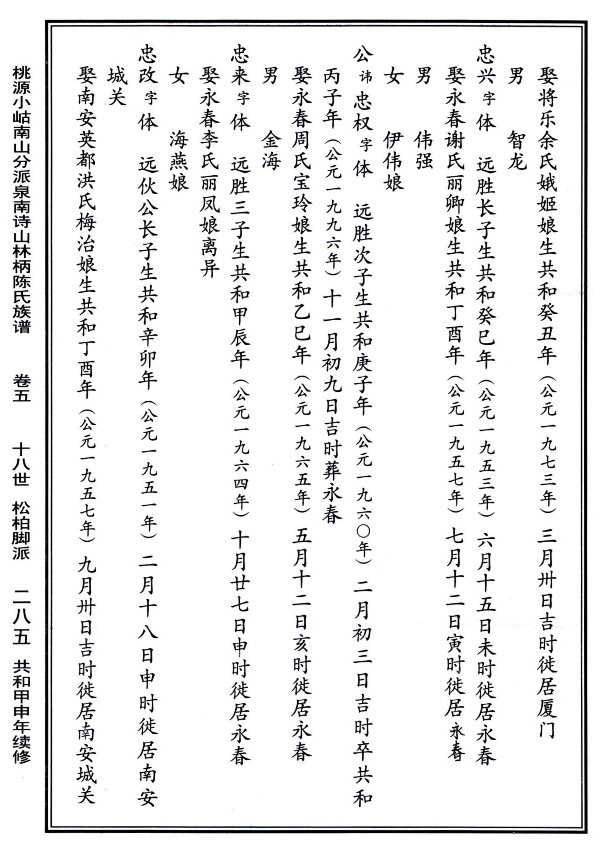 娶将乐余氏娥姬娘生共和癸丑年（公元一九七三年）三月卅日吉时徙居厦门
男　智龙
忠兴字体　远胜长子生共和癸巳年（公元一九五三年）六月十五日未时徙居永春
娶永春谢氏丽卿娘生共和丁酉年（公元一九五七年）七月十二日寅时徙居永春
男　伟强
女　伊伟娘
公讳忠权字体　远胜次子生共和庚子年（公元一九六〇年）二月初三日吉时卒共和
丙子年（公元一九九六年）十一月初九日吉时葬永春
娶永春周氏宝玲娘生共和乙巳年（公元一九六五年）五月十二日亥时徙居永春
男　金海
忠来字体　远胜三子生共和甲辰年（公元一九六四年）十月廿七日申时徙居永春
娶永春李氏丽凤娘离异
女　海燕娘
忠改字体　远伙公长子生共和辛卯年（公元一九五一年）二月十八日申时徙居南安
城关
娶南安英都洪氏梅治娘生共和丁酉年（公元一九五七年）九月卅日吉时徙居南安城关
桃源小岵南山分派泉南诗山林柄陈氏族谱　卷五　十八世　松柏脚派　二八五　共和甲申年续修